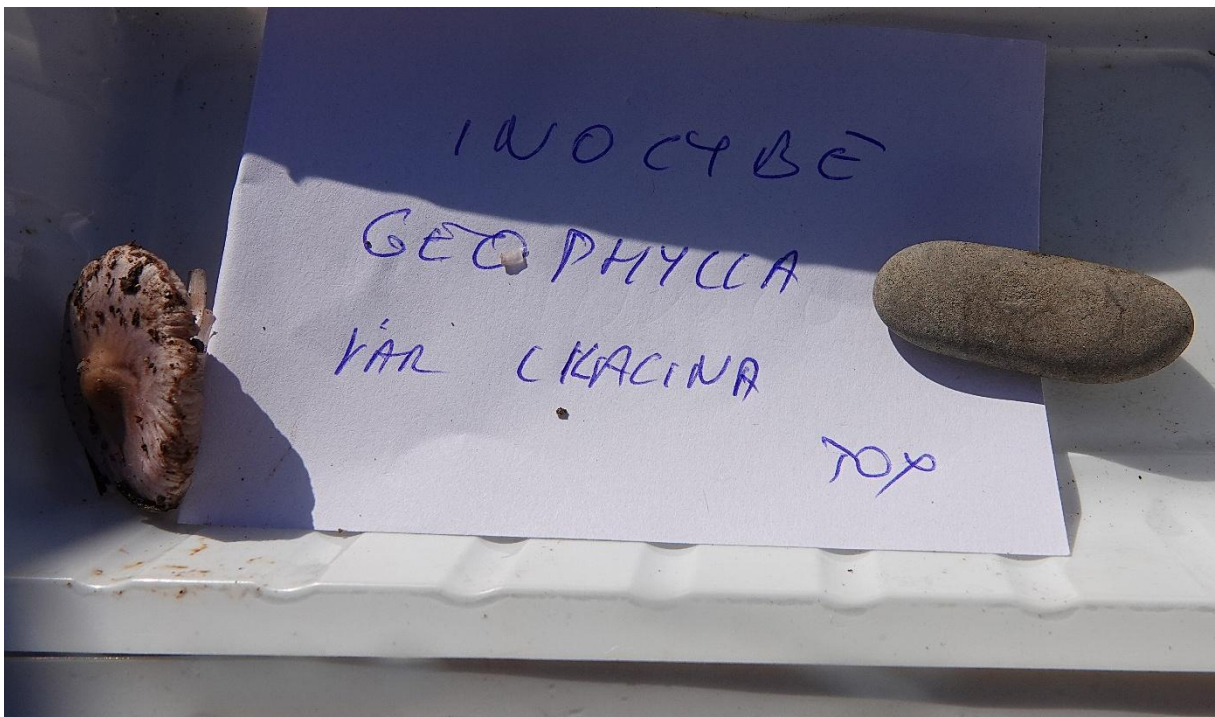 INOCYBE
GEOPHYLLA
VAR LILACINA
TOX